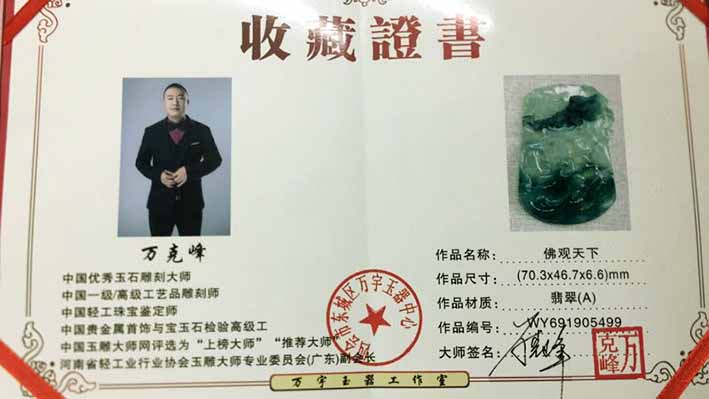 收藏證書
万克峰
中国优秀玉石雕刻大师
中国一级/高级工艺品雕刻师
中国轻工珠宝鉴定师
中国贵金属首饰与宝玉石检验高级工
中国玉雕大师网评选为“上榜大师”“推荐大师”
河南省轻工业行业协会玉雕大师专业委员会(广东)副会长
作品名称: 佛观天下
作品尺寸: (70.3x46.7x6.6)mm
作品材质: 翡翠(A)
作品编号: WY691905499
大师签名: 万克峰
万克峰
市东城区万宇玉器中心
万宇玉器工作室